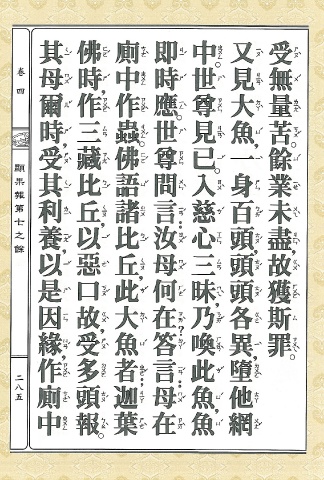 受無量苦。餘業未盡故獲斯罪。
又見大魚,一身百頭,頭頭各異,墮他網
中。世尊見已。入慈心三昧,乃喚此魚,魚
即時應。世尊問言:汝母何在?答言:母在
廁中作蟲。佛語諸比丘,此大魚者,迦葉
佛時,作三藏比丘,以惡口故,受多頭報。
其母爾時,受其利養,以是因緣,作廁中
卷四
顯果報第七之餘
二八五